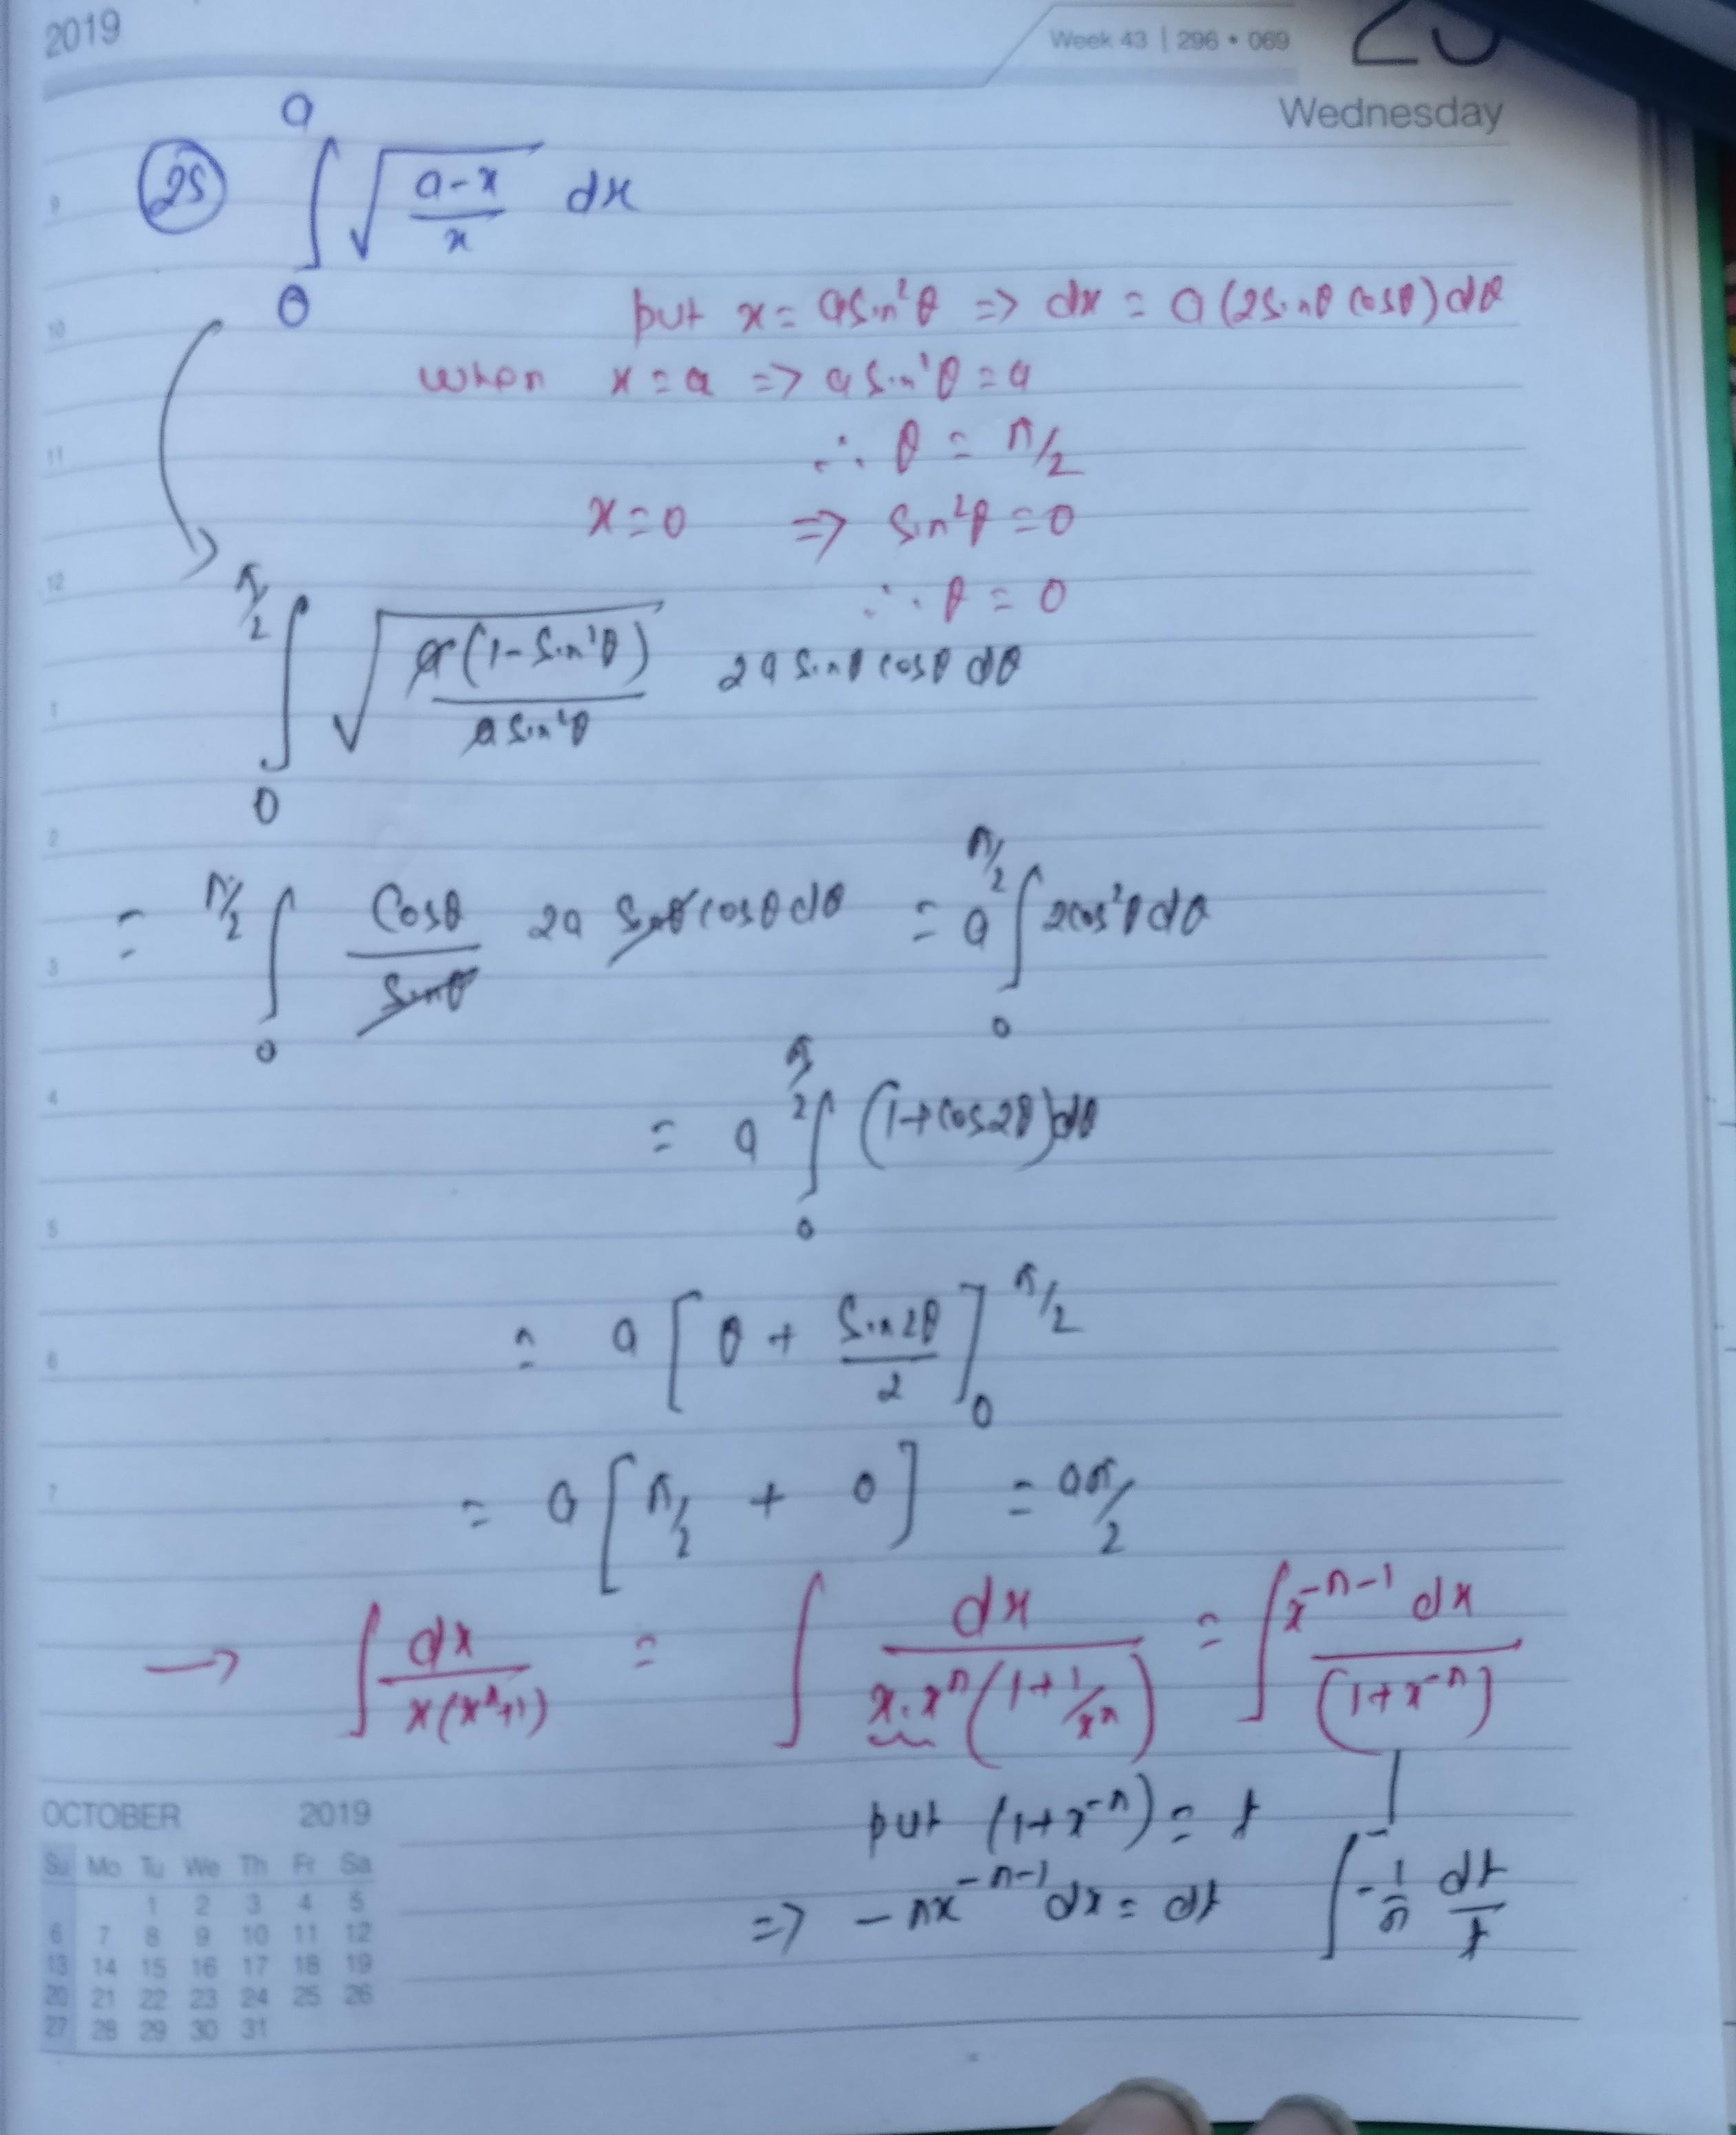 2019 Week 43 | 296 • 069
Wednesday
(25) ∫₀ᵃ √((a-x)/x) dx
put x = a sin²θ => dx = a (2sinθ cosθ) dθ
when x = a => a sin²θ = a
∴ θ = π/2
x = 0 => sin²θ = 0
∴ θ = 0
∫₀^(π/2) √(a(1-sin²θ)/(a sin²θ)) 2a sinθ cosθ dθ
= ∫₀^(π/2) (cosθ/sinθ) 2a sinθ cosθ dθ = a ∫₀^(π/2) 2cos²θ dθ
= a ∫₀^(π/2) (1+cos2θ) dθ
= a [θ + sin2θ/2]₀^(π/2)
= a [π/2 + 0] = aπ/2
→ ∫ dx/(x(xⁿ+1)) = ∫ dx/(x.xⁿ(1+1/xⁿ)) = ∫ x⁻ⁿ⁻¹ dx/(1+x⁻ⁿ)
put (1+x⁻ⁿ) = t
=> -nx⁻ⁿ⁻¹ dx = dt ∫ -1/n dt/t
9
10
11
12
1
2
3
4
5
6
7
OCTOBER 2019
Su Mo Tu We Th Fr Sa
1 2 3 4 5
6 7 8 9 10 11 12
13 14 15 16 17 18 19
20 21 22 23 24 25 26
27 28 29 30 31